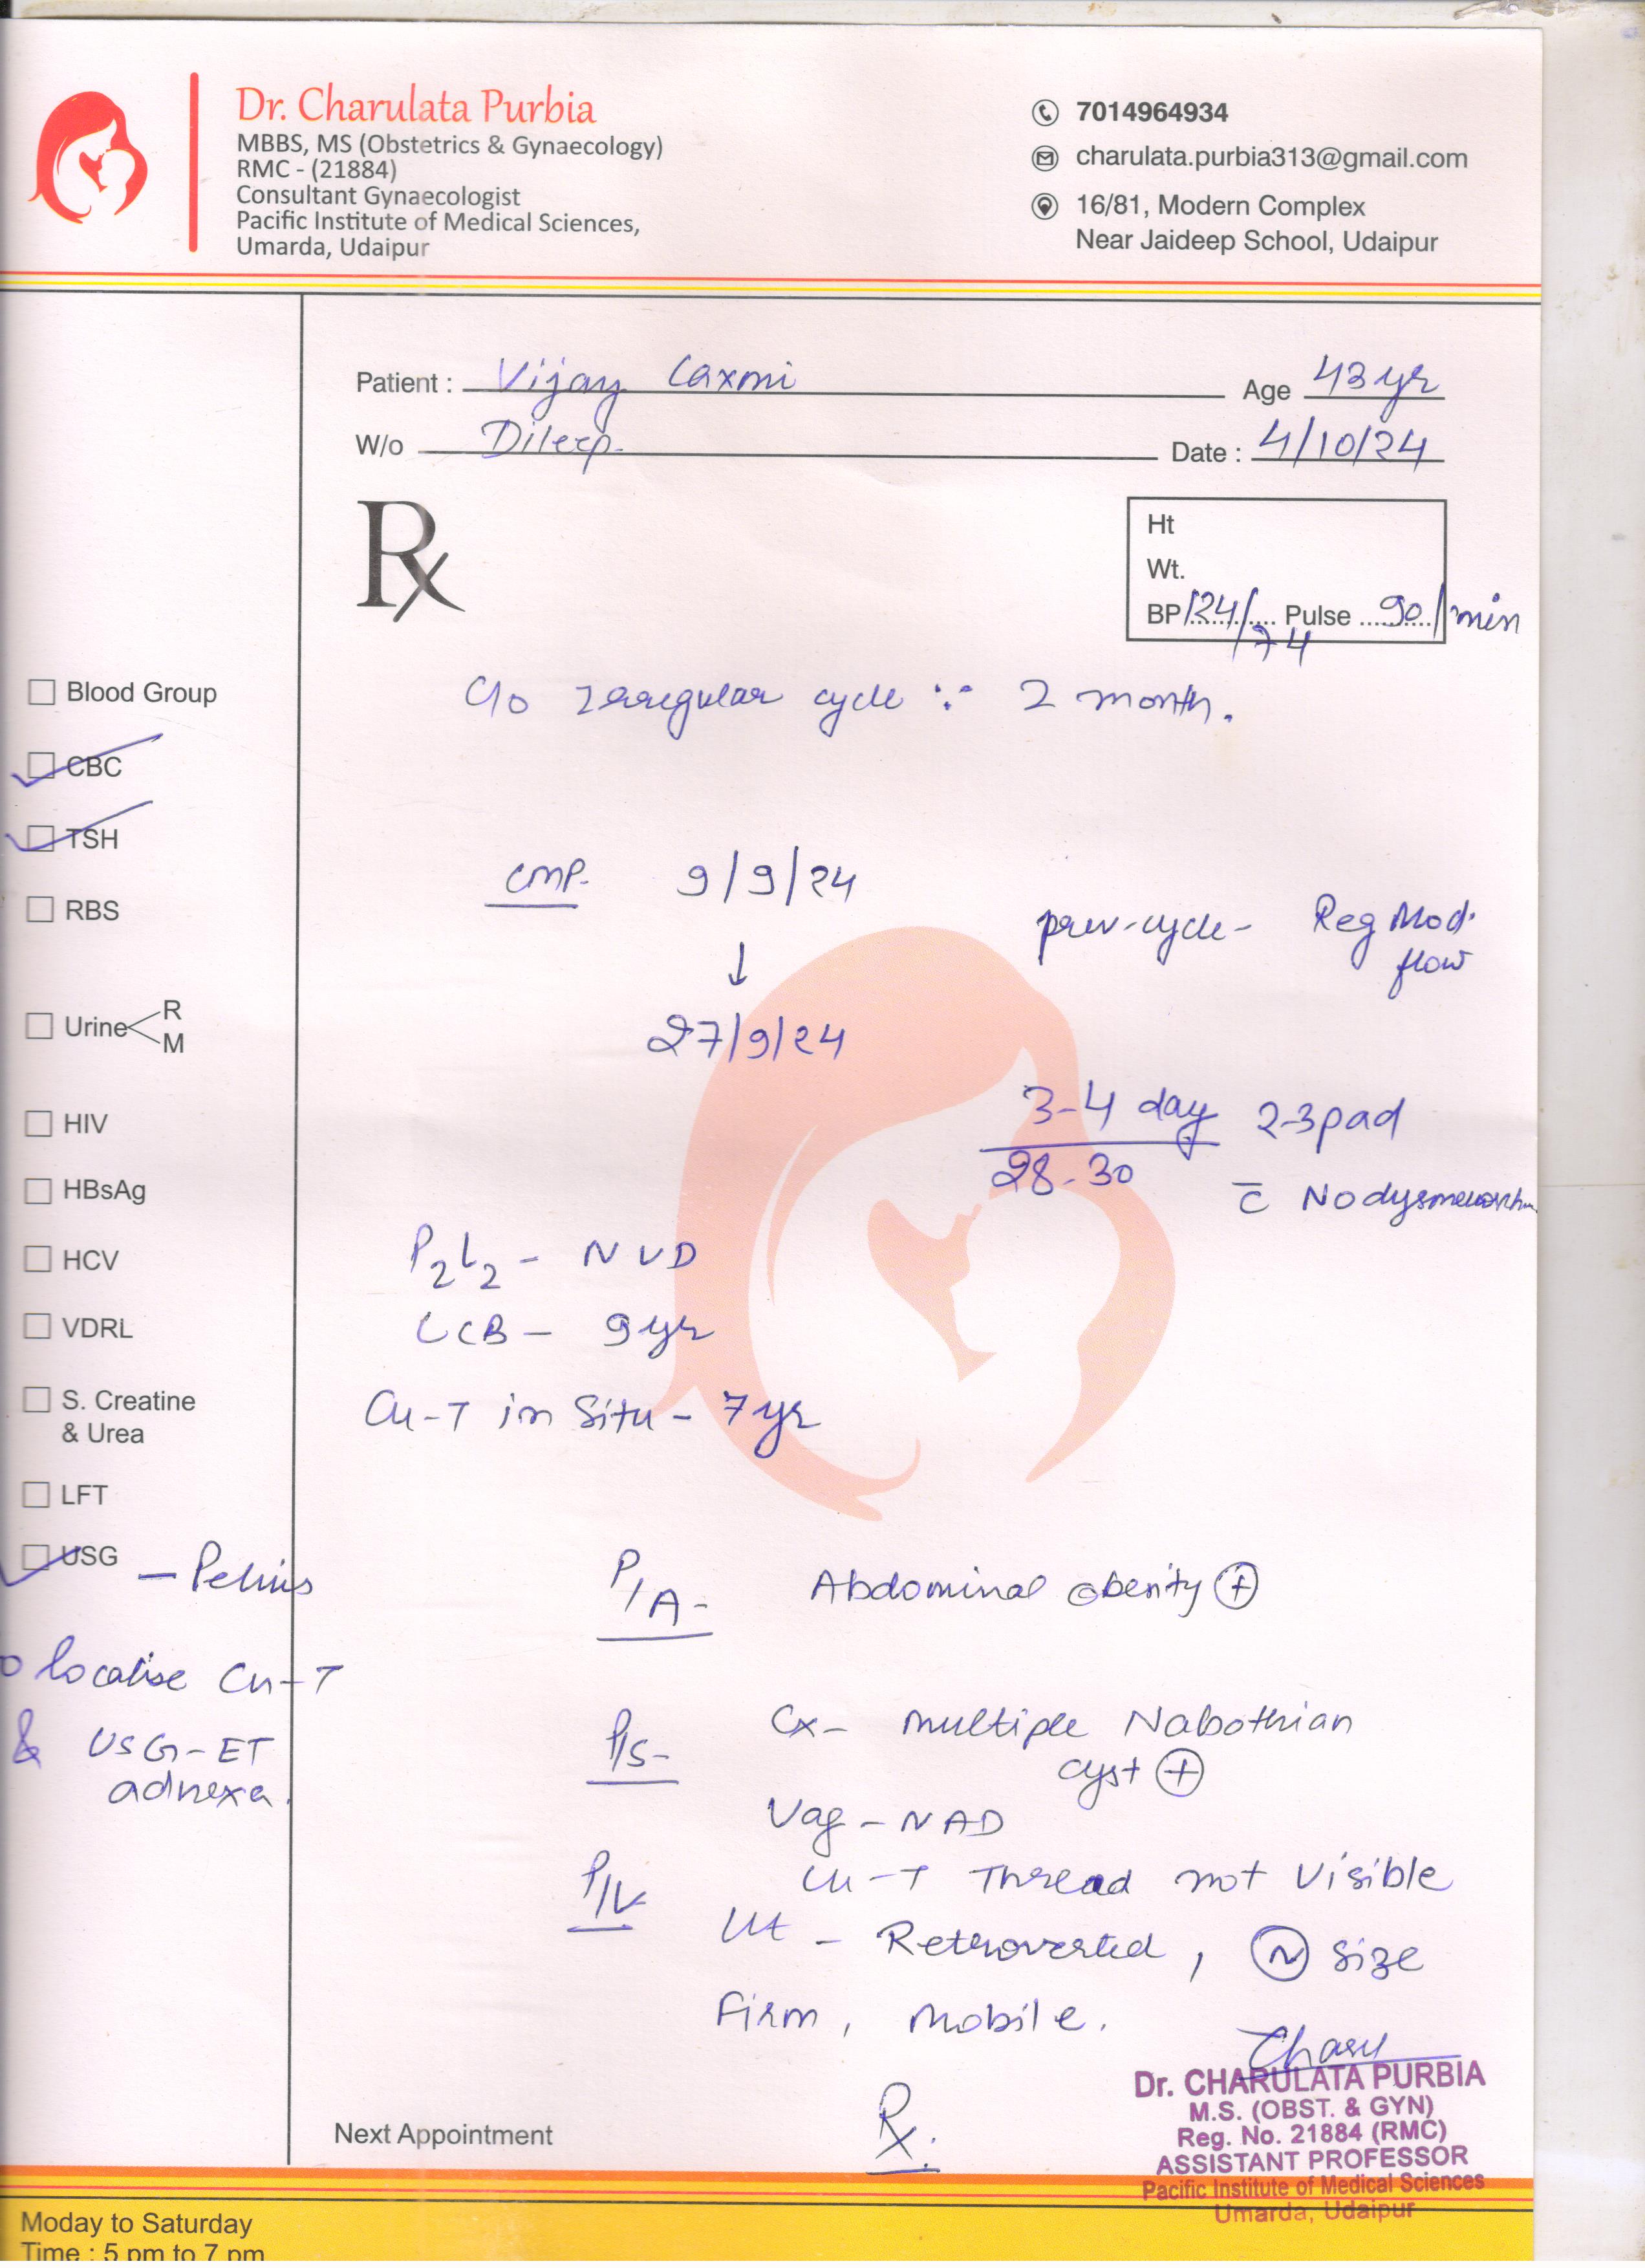 Dr. Charulata Purbia
MBBS, MS (Obstetrics & Gynaecology)
RMC - (21884)
Consultant Gynaecologist
Pacific Institute of Medical Sciences,
Umarda, Udaipur
7014964934
charulata.purbia313@gmail.com
16/81, Modern Complex
Near Jaideep School, Udaipur
Patient : Vijay Laxmi Age 43 yr
W/o Dileep. Date : 4/10/24
Rx
Ht
Wt.
BP 124/74 Pulse 90/min
C/o Irregular cycle ∵ 2 month.
LMP. 9/9/24
↓
27/9/24
prev-cycle- Reg Mod.
flow
3-4 day 2-3 pad
28-30
c̄ No
P2L2 - NVD
LCB - 9 yr
Cu-T in Situ - 7 yr
P/A- Abdominal obesity ⊕
P/S- Cx- multiple Nabothian
cyst ⊕
Vag - NAD
Cu-T Thread not visible
P/V Ut - Retroverted, Ⓝ size
Firm, mobile.
Rx.
Blood Group
✓ CBC
✓ TSH
RBS
Urine < R
M
HIV
HBsAg
HCV
VDRL
S. Creatine
& Urea
LFT
✓ USG - Pelvis
localise Cu-T
& USG-ET
adnexa.
Charu
Dr. CHARULATA PURBIA
M.S. (OBST. & GYN)
Reg. No. 21884 (RMC)
ASSISTANT PROFESSOR
Pacific Institute of Medical Sciences
Umarda, Udaipur
Next Appointment
Moday to Saturday
Time : 5 pm to 7 pm